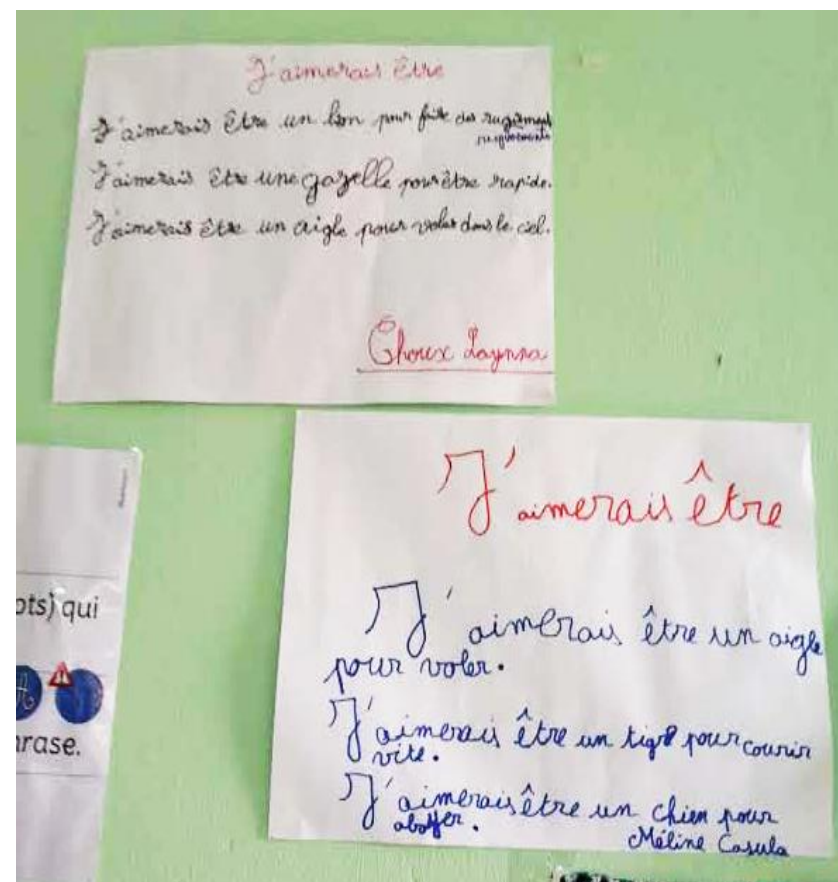 J'aimerais être
J'aimerais être un lion pour faire des rugissements
rugissements
J'aimerais être une gazelle pour être rapide.
J'aimerais être un aigle pour voler dans le ciel.
Choux Laynna
J'aimerais être
J'aimerais être un aigle
pour voler.
J'aimerais être un tigre pour courir
vite.
J'aimerais être un chien pour
aboyer.
Méline Casula
ots) qui
A
rase.